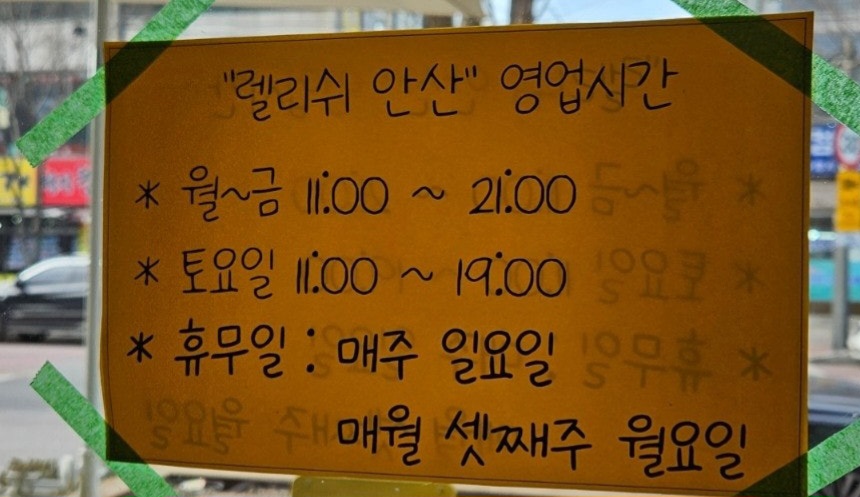 "렐리쉬 안산" 영업시간
* 월~금 11:00 ~ 21:00
* 토요일 11:00 ~ 19:00
* 휴무일 : 매주 일요일
매월 셋째주 월요일